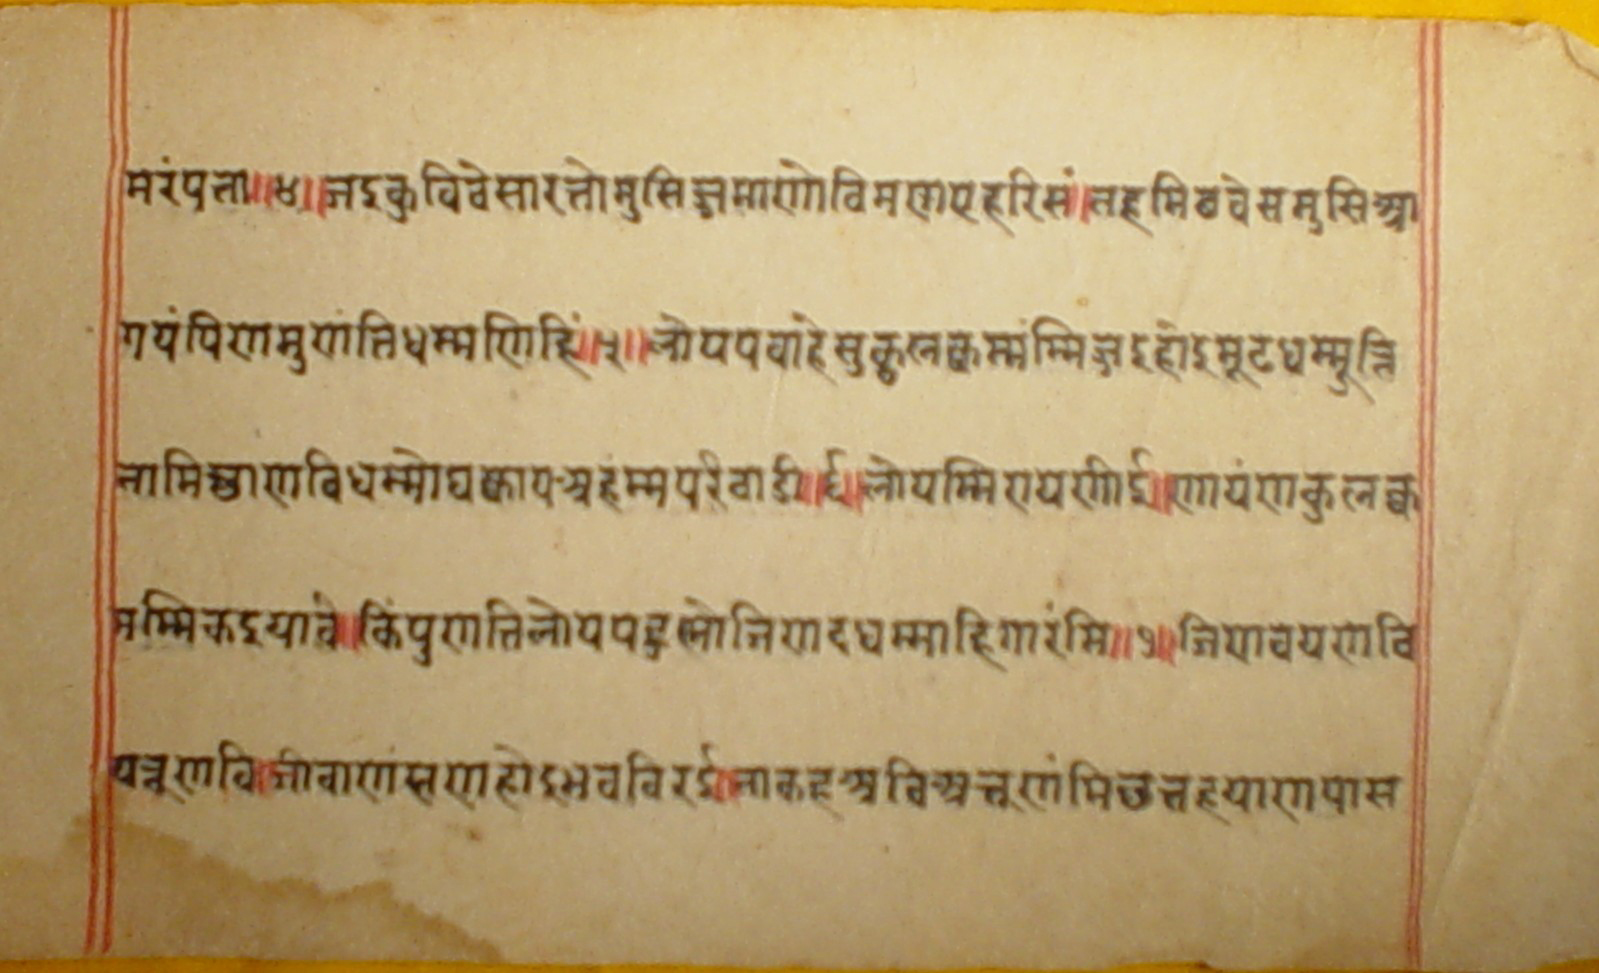 मरंपत्ता॥४॥जइकुविवेसारत्तोमुसिज्जमाणोविमणएहरिसं।तहमिछवेसमुसिआ
गयंपिणमुणंतिधम्मणिहिं॥५॥लोयपवाहेसुकुलक्कमंम्मिजइहोइमूढधम्मूत्ति
तामिछाणविधम्मोघक्कापअहंम्मपरिवाडी॥६॥लोयम्मिरायणीई॥णायंणकुलक्क
मम्मिकइयावे॥किंपुणतिलोयपहुलोजिणदधम्माहिगारंमि॥७॥जिणवयणवि
यन्नूणवि।जीवाणंसणहोइभवविरई।ताकहअविअन्नूणंमिछत्तहयाणपास